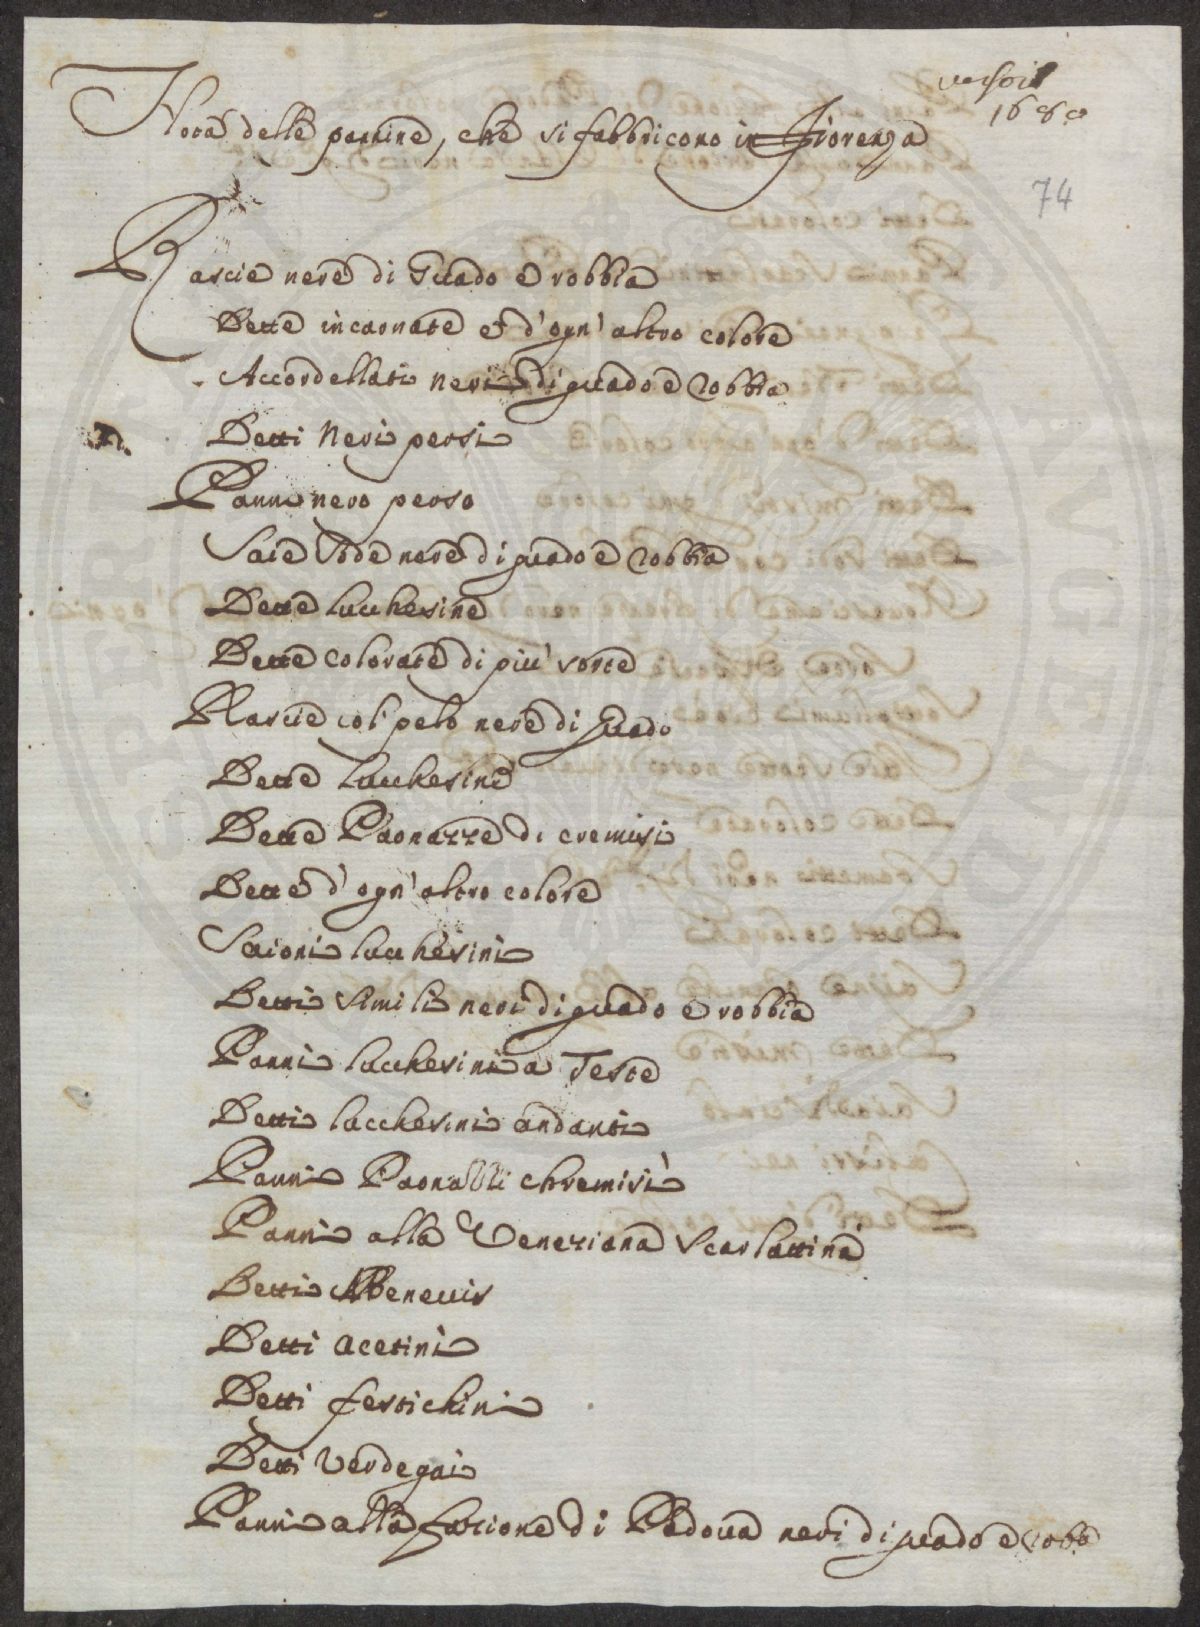 1680
Nota delle pannine, che si fabbricono in Fiorenza
74
Rascie nere di Guado e robbia
Dette incarnate et d'ogn' altro colore
Accordellati neri di guado e robbia
Detti Neri persi
Panni nero perso
Saie sode nere di guado e robbia
Dette lucchesine
Dette colorate di più sorte
Rascie col pelo nere di guado
Dette lucchesine
Dette Paonazze di cremisi
Dette d'ogn' altro colore
Saioni lucchesini
Detti simili neri di guado e robbia
Panni lucchesini a Teste
Detti lucchesini andanti
Panni Paonazzi chremisi
Panni alla Veneziana Scarlattina
Detti
Detti acetini
Detti festichini
Detti Verdegai
Panni alla fazione di Padoua neri di guado e robb